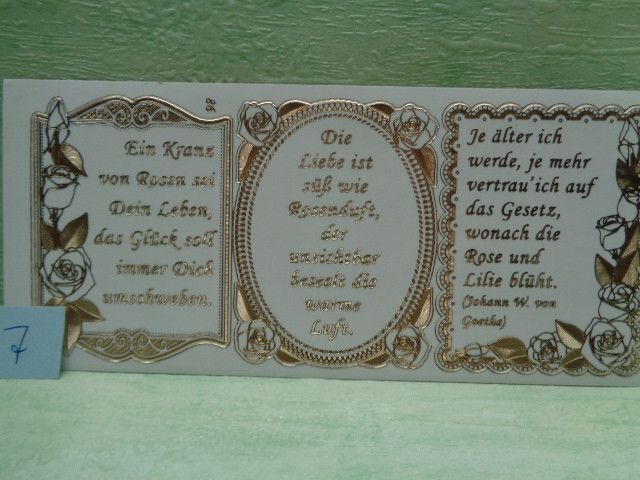 Ein Kranz
von Rosen sei
Dein Leben,
das Glück soll
immer Dich
umschweben.
98
Die
Liebe ist
süß wie
Rosenduft,
der
unsichtbar
beseelt die
warme
Luft.
Je älter ich
werde, je mehr
vertrau'ich auf
das Gesetz,
wonach die
Rose und
Lilie blüht.
(Johann W. von
Goethe)
7